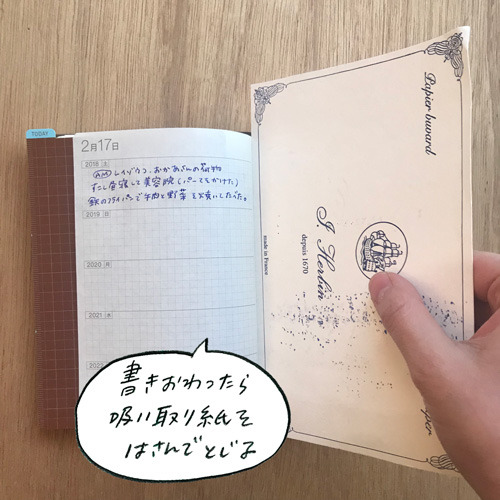 TODAY
2月17日
2018 土
AM レイゾウコ、おかあさんの荷物
すこし昼寝して美容院(パーマをかけた)
鉄のフライパンで牛肉と野菜を焼いて
2019 日
2020 月
2021 火
2022
Papier buvard
J. Herbin
depuis 1670
made in France
書きおわったら
吸い取り紙を
はさんでとじる